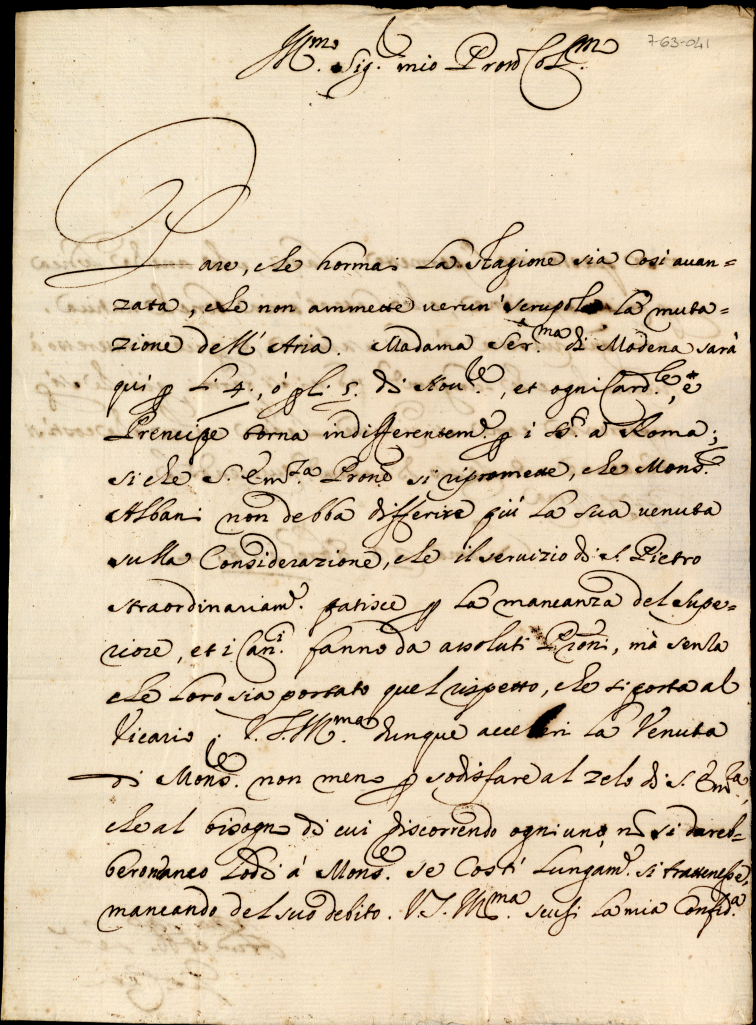 7-63-041
Ill.mo Sig.r mio Pron Col.mo
Pare, che hormai la stagione sia così avan=
zata, che non ammette verun' scrupolo la muta=
zione dell' Aria. Madama Ser.ma di Modena sarà
quì p li 4., ò p li 5. di Nov.re, et ogni Card.le, è
Prencipe torna indifferentem.e p i S.ti à Roma;
si che S. Em.za Prone si ripromette, che Mons.re
Albani non debba differire più la sua venuta
sulla Considerazione, che il servizio di S. Pietro
straordinariam.e patisce p la mancanza del Supe=
riore, et i Can.i fanno da assoluti Proni, mà senza
che loro sia portato quel rispetto, che si porta al
Vicario; V.S. Ill.ma dunque acceleri la Venuta
di Mons.re non meno p sodisfare al zelo di S. Em.za,
che al bisogno di cui discorrendo ogni uno nõ si dareb=
bero manco Lodi à Mons.re se Costì lungam.e si trattenesse,
mancando del suo debito. V.S. Ill.ma scusi la mia Confid.a